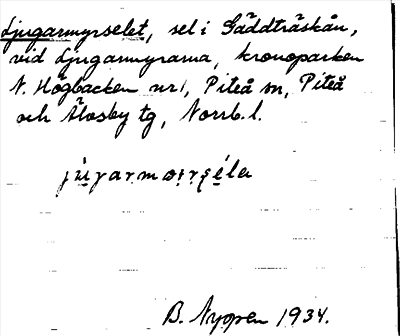 Ljugarmyrselet, sel i Gäddträskån,
vid Ljugarmyrarna, kronoparken
N. Högbacken nr 1, Piteå sn, Piteå
och Älvsby tg, Norrb. l.
B. Nyopen 1934.